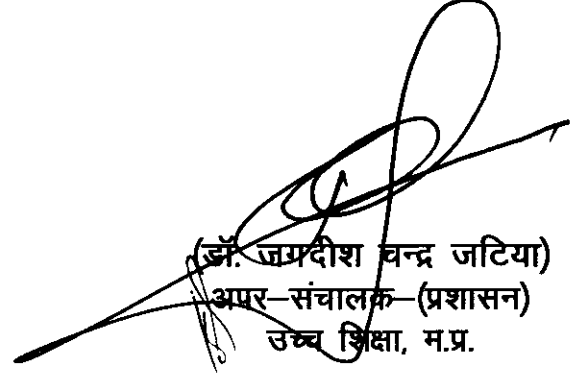 (डॉ. जगदीश चन्द्र जटिया)
अपर–संचालक–(प्रशासन)
उच्च शिक्षा, म.प्र.